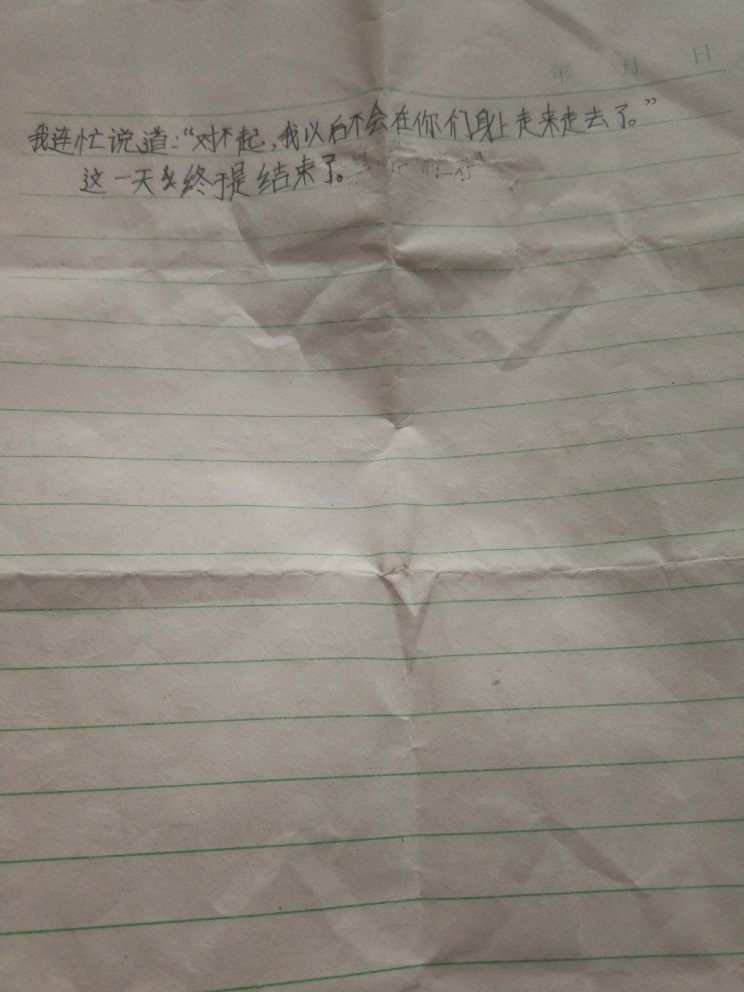 年 月 日
我连忙说道:“对不起,我以后不会在你们身上走来走去了。”
这一天终于是结束了。